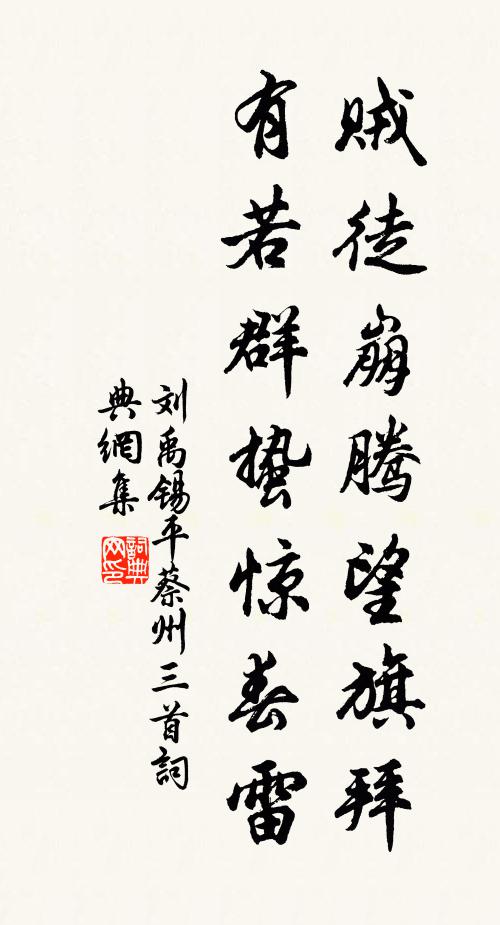 贼徒崩腾望旗拜
有若群蛰惊春雷
刘禹锡平蔡州三首詞
典網集
詞典
网印